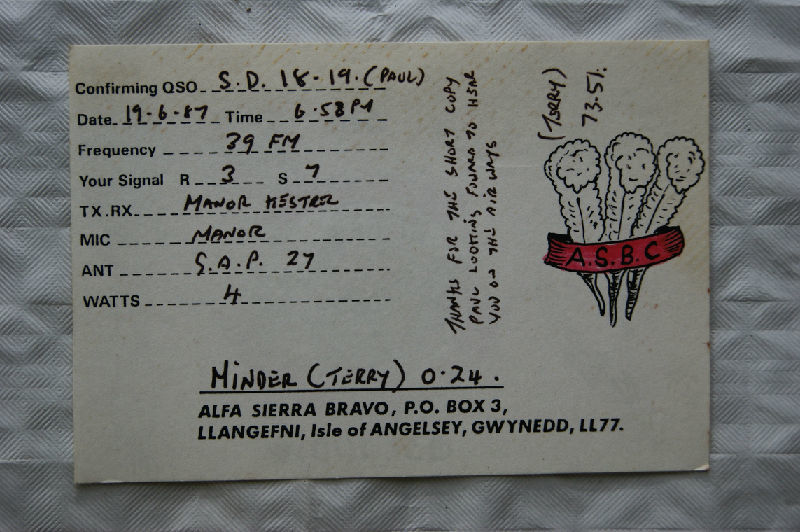 Confirming QSO S.D. 18-19. (PAUL)
Date 19-6-87 Time 6.58 PM
Frequency 39 FM
Your Signal R 3 S 7
TX.RX. MANOR KESTREL
MIC MANOR
ANT G.A.P. 27
WATTS 4
THANKS FOR THE SHORT COPY
PAUL LOOKING FOWARD TO HEAR
YOU ON THE AIR WAYS
(TERRY)
73.51.
A.S.B.C
MINDER (TERRY) 0.24.
ALFA SIERRA BRAVO, P.O. BOX 3,
LLANGEFNI, Isle of ANGELSEY, GWYNEDD, LL77.